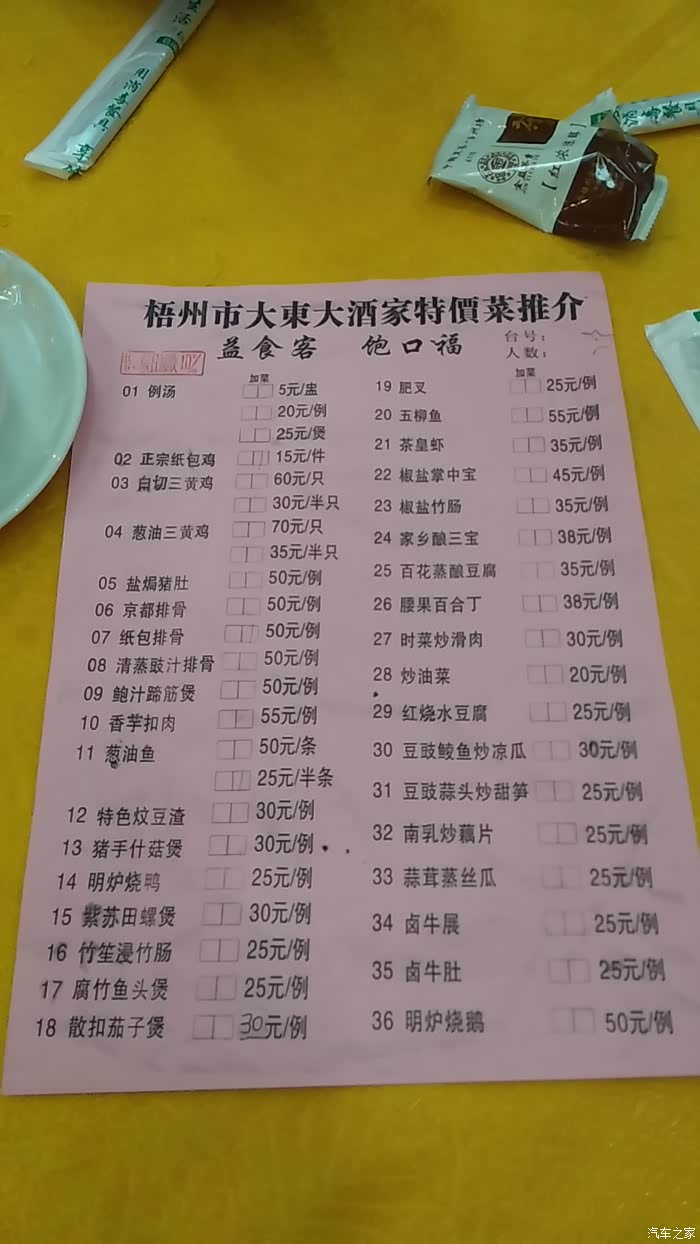 用消毒餐具
【红浓浩醇】
梧州市大東大酒家特價菜推介
益食客 饱口福
台号:
人数:
加菜
01 例汤 5元/盅
20元/例
25元/煲
02 正宗纸包鸡 15元/件
03 白切三黄鸡 60元/只
30元/半只
04 葱油三黄鸡 70元/只
35元/半只
05 盐焗猪肚 50元/例
06 京都排骨 50元/例
07 纸包排骨 50元/例
08 清蒸豉汁排骨 50元/例
09 鲍汁蹄筋煲 50元/例
10 香芋扣肉 55元/例
11 葱油鱼 50元/条
25元/半条
12 特色炆豆渣 30元/例
13 猪手什菇煲 30元/例
14 明炉烧鸭 25元/例
15 紫苏田螺煲 30元/例
16 竹笙浸竹肠 25元/例
17 腐竹鱼头煲 25元/例
18 散扣茄子煲 30元/例
加菜
19 肥叉 25元/例
20 五柳鱼 55元/例
21 茶皇虾 35元/例
22 椒盐掌中宝 45元/例
23 椒盐竹肠 35元/例
24 家乡酿三宝 38元/例
25 百花蒸酿豆腐 35元/例
26 腰果百合丁 38元/例
27 时菜炒滑肉 30元/例
28 炒油菜 20元/例
29 红烧水豆腐 25元/例
30 豆豉鲮鱼炒凉瓜 30元/例
31 豆豉蒜头炒甜笋 25元/例
32 南乳炒藕片 25元/例
33 蒜茸蒸丝瓜 25元/例
34 卤牛展 25元/例
35 卤牛肚 25元/例
36 明炉烧鹅 50元/例
汽车之家